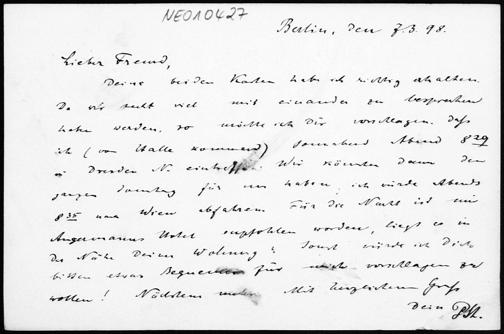 NEO10427
Berlin, den 7.3.98.
Lieber Freund,
Deine beiden Karten habe ich richtig erhalten.
Da wir recht viel mit einander zu besprechen
haben werden, so möchte ich Dir vorschlagen, daß
ich (von Halle kommend) Sonnabend Abend 8 29
in Dresden N. eintreffe. Wir könnten dann den
ganzen Sonntag für uns haben; ich würde Abends
8 35 nach Wien abfahren. Für die Nacht ist mir
Angermanns Hotel empfohlen worden, liegt es in
der Nähe Deiner Wohnung? Sonst würde ich Dich
bitten etwas Bequemeres für mich vorschlagen zu
wollen! Nächstens mehr. Mit herzlichem Gruß
Dein